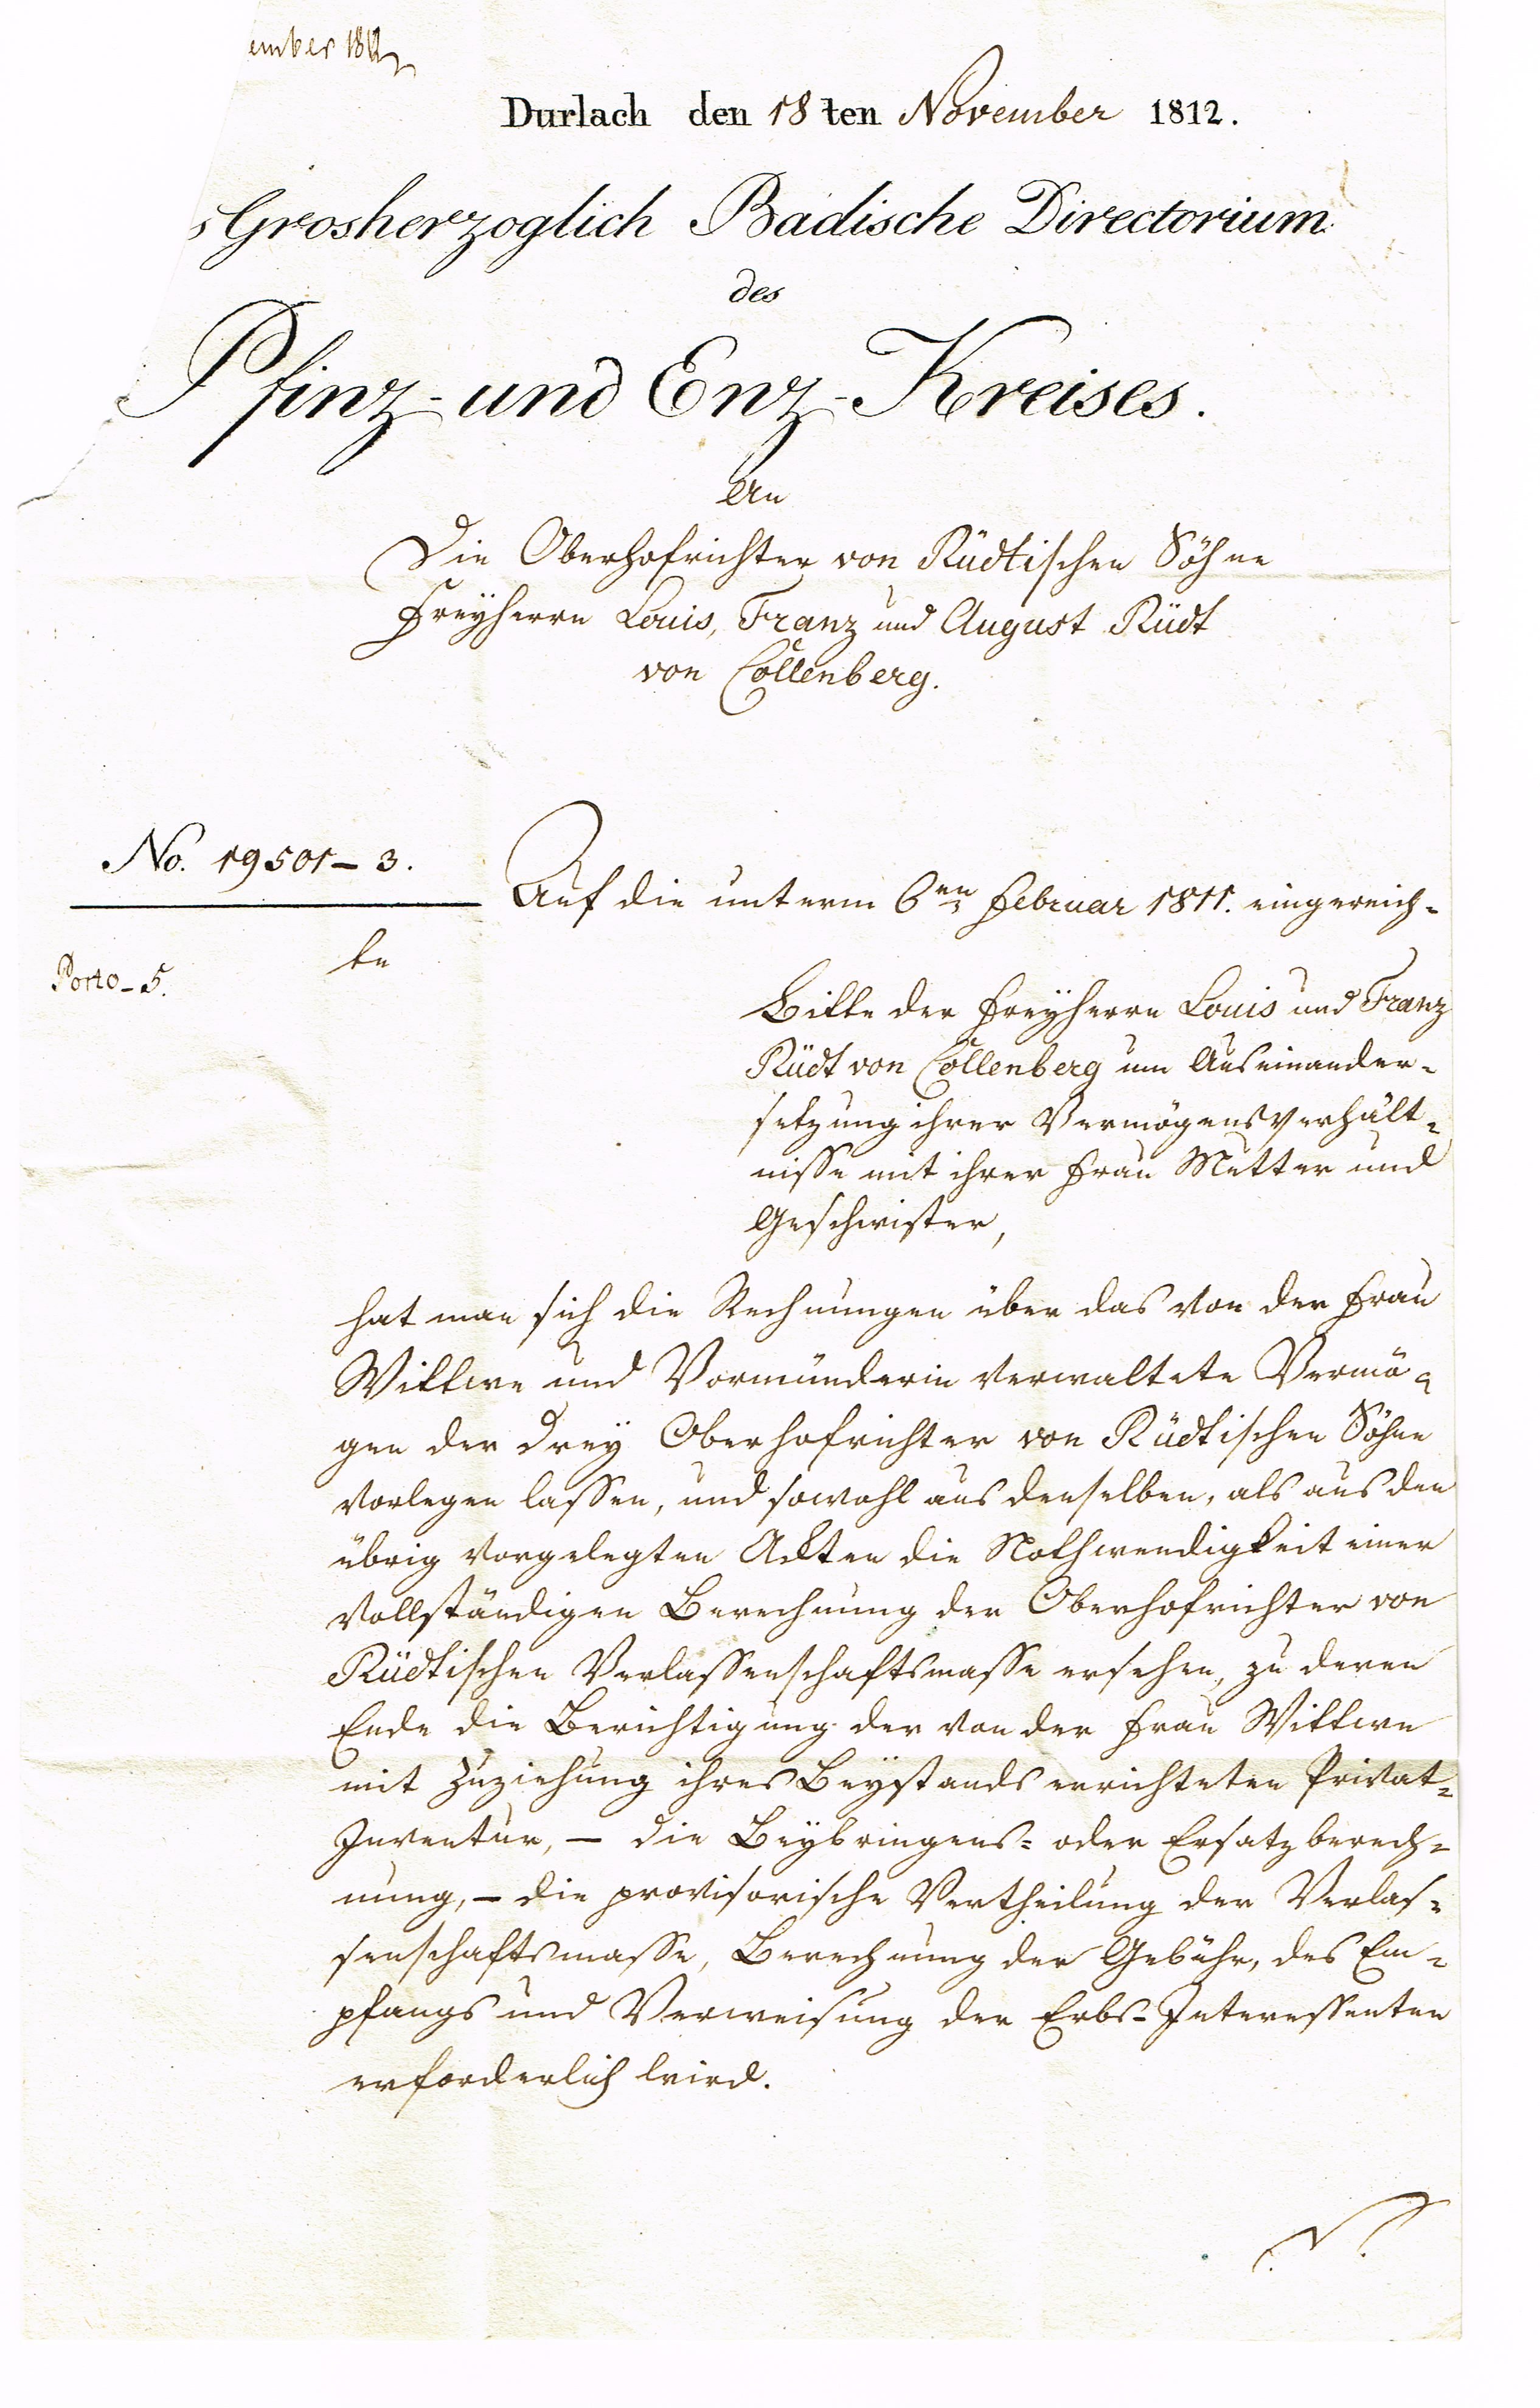 ember 1812
Durlach den 18ten November 1812.
s Grosherzoglich Badische Directorium
des
Pfinz- und Enz-Kreises.
An
Die Oberhofrichter von Rüdtischen Söhne
Freyherrn Louis, Franz und August Rüdt
von Collenberg.
No. 19501-3.
Auf die unterm 6ten Februar 1811. eingereich-
te
Porto-5.
Bitte der Freyherrn Louis und Franz
Rüdt von Collenberg um Auseinander-
setzung ihrer Vermögensverhält-
nisse mit ihrer Frau Mutter und
Geschwister,
hat man sich die Rechnungen über das von der Frau
Wittwe und Vormünderin verwaltete Vermö-
gen der drey Oberhofrichter von Rüdtischen Söhne
vorlegen lassen, und sowohl aus denselben, als aus den
übrig vorgelegten Ackten die Nothwendigkeit einer
vollständigen Berechnung der Oberhofrichter von
Rüdtischen Verlassenschaftsmasse ersehen, zu deren
Ende die Berichtigung der von der Frau Wittwe
mit Zuziehung ihres Beystands errichteten Privat-
Inventur, - die Beybringens- oder Ersatzberech-
nung, - die provisorische Vertheilung der Verlas-
senschaftsmasse, Berechnung der Gebühr, des Em-
pfangs und Verweisung der Erbs-Interessenten
erforderlich wird.